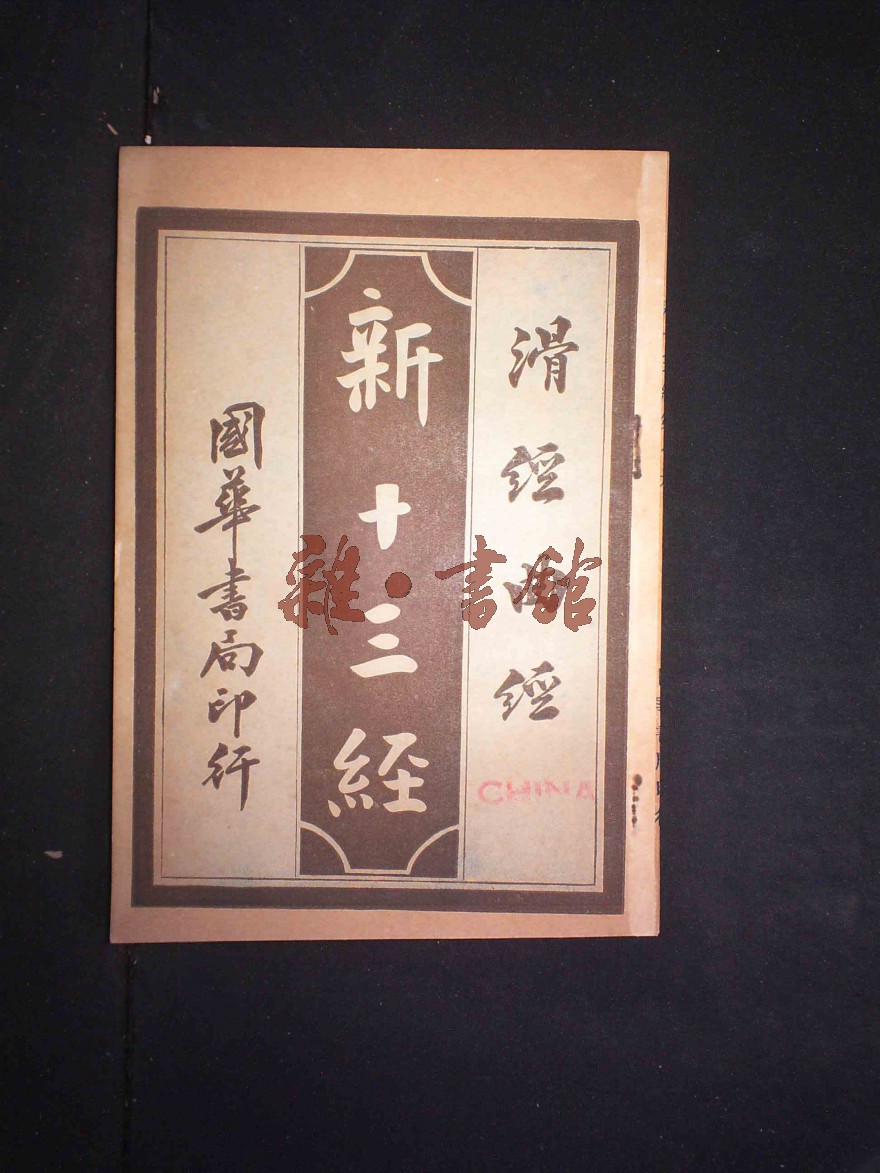 滑經曲經
新十三經
國華書局印行
雜·書館
CHINA